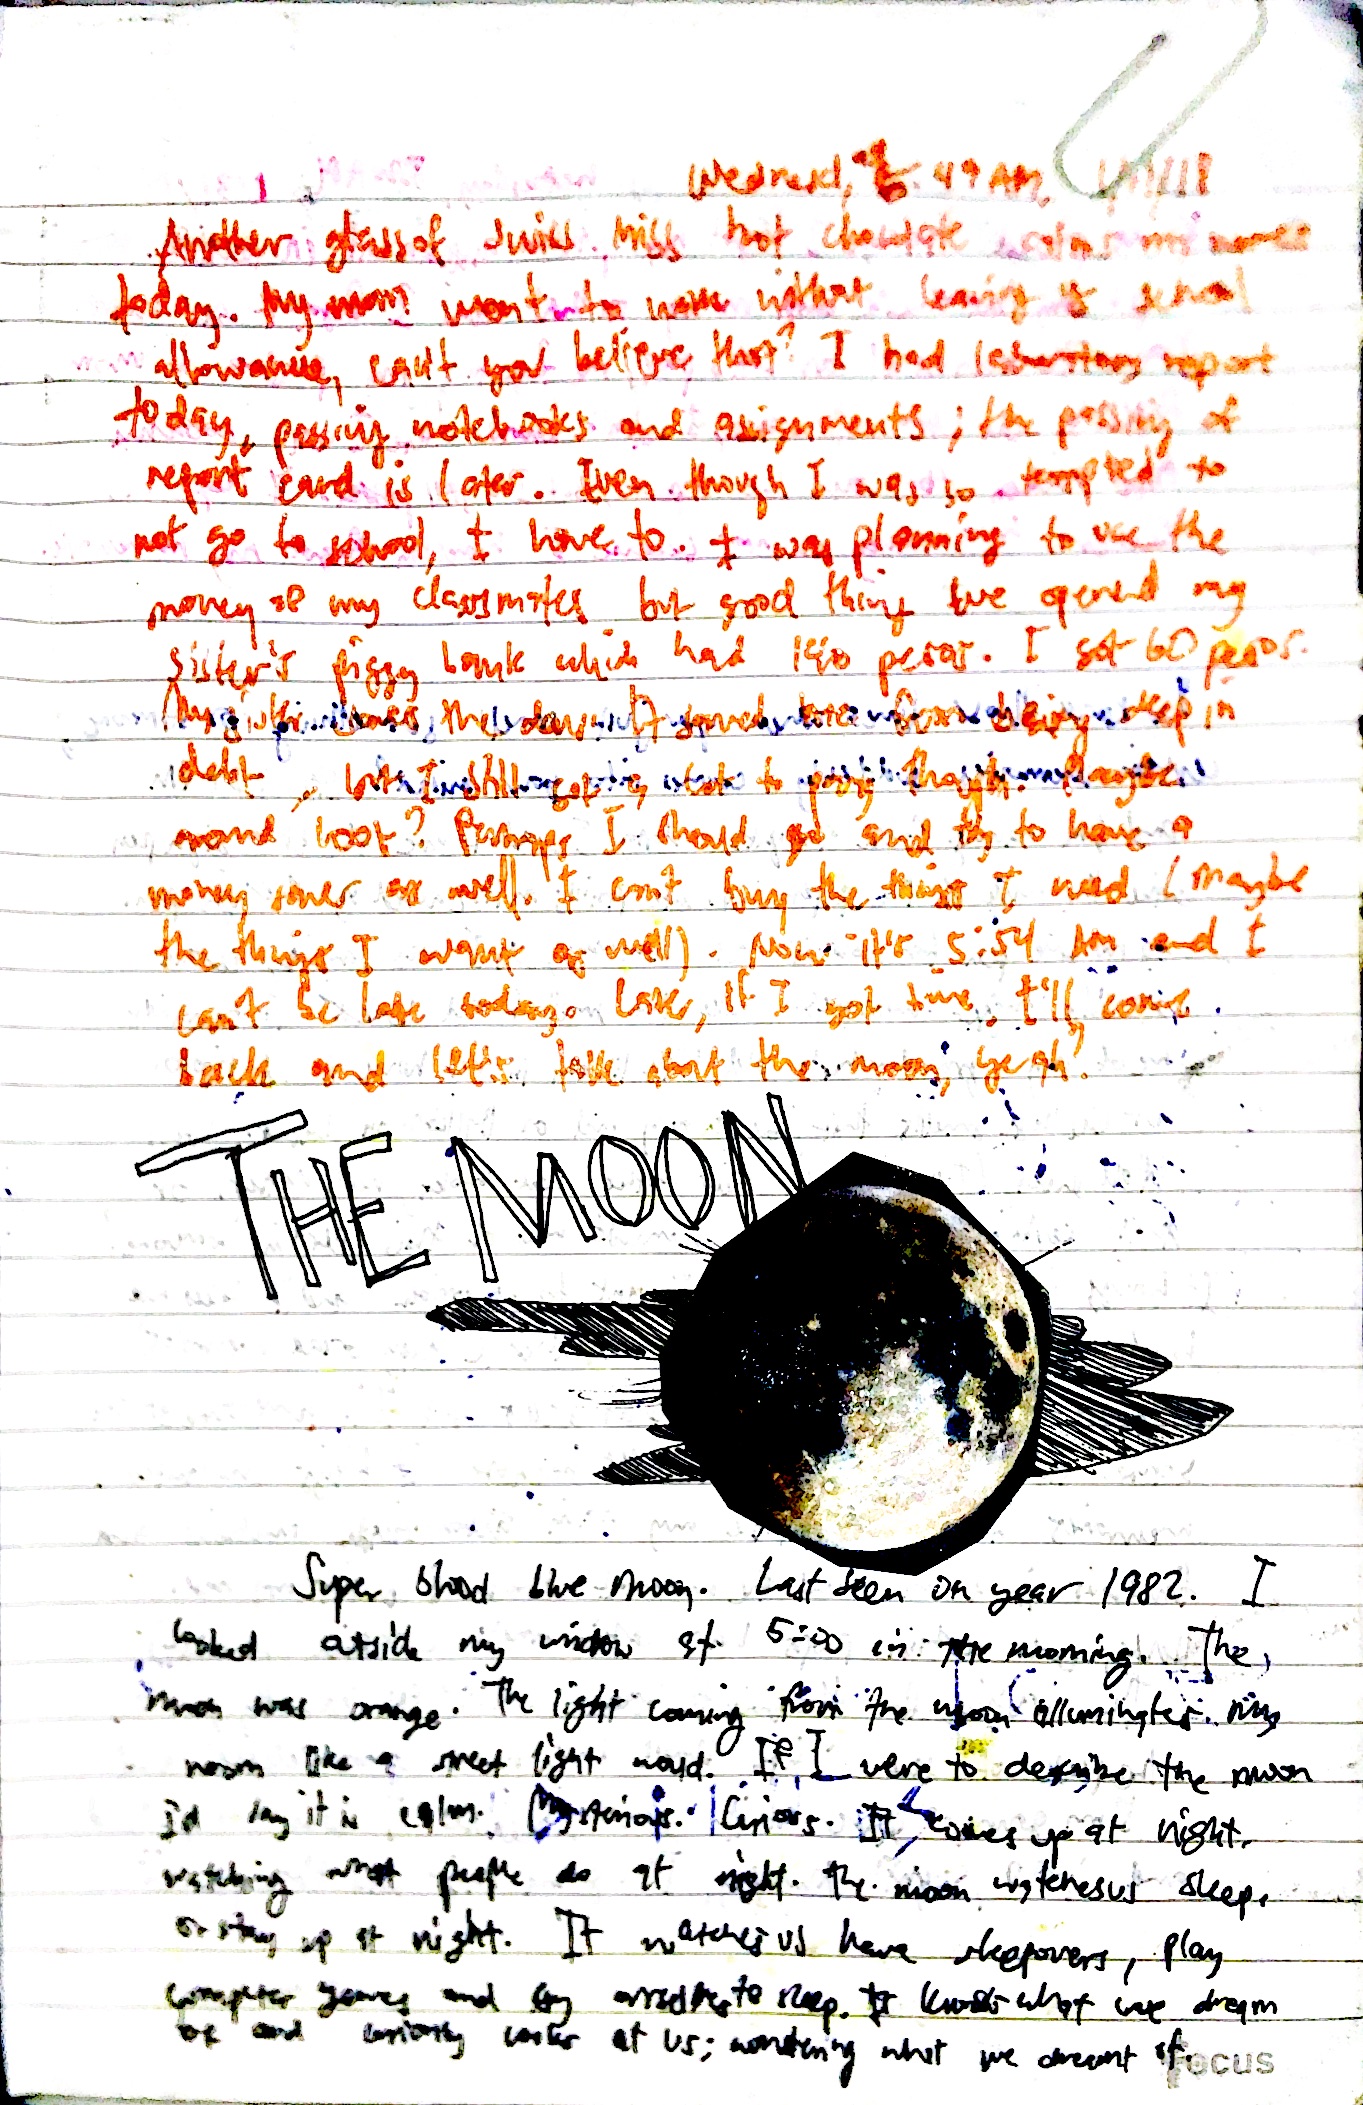 Wednesd, 49 AM,
Another glass of swiss miss hot chocolate calms my nerves
today. My mom went to work without leaving us school
allowance, can't you believe that? I had laboratory report
today, passing notebooks and assignments; the passing of
report card is later. Even though I was so tempted to
not go to school, I have to. I was planning to use the
money of my classmates but good thing I've opened my
sister's piggy bank which had 140 pesos. I got 60 pesos.
My sister saves the day. It saved me from being deep in
debt, but I still got a lot to pay though. Maybe
around 400? Perhaps I should go and try to have a
money saver as well. I can't buy the things I need (maybe
the things I want as well). Now it's 5:54 AM and I
can't be late today. Later, if I got time, I'll come
back and let's talk about the moon, yeah?
THE MOON
Super blood blue moon. Last seen on year 1982. I
looked outside my window at 5:00 in the morning. The
moon was orange. The light coming from the moon illuminates my
room like a street light would. If I were to describe the moon
I'd say it is calm. Mysterious. Curious. It comes up at night,
watching what people do at night. The moon watches us sleep,
or stay up at night. It watches us have sleepovers, play
computer games and cry ourselves to sleep. It knows what we dream
of and curiously looks at us; wondering what we dreamt of.
Focus